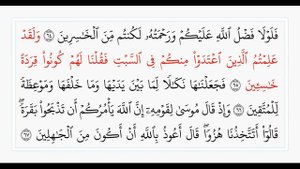 فَلَوْلَا فَضْلُ اللَّهِ عَلَيْكُمْ وَرَحْمَتُهُ لَكُنتُم مِّنَ الْخَاسِرِينَ ٦٤ وَلَقَدْ
عَلِمْتُمُ الَّذِينَ اعْتَدَوْا مِنكُمْ فِي السَّبْتِ فَقُلْنَا لَهُمْ كُونُوا قِرَدَةً
خَاسِئِينَ ٦٥ فَجَعَلْنَاهَا نَكَالًا لِّمَا بَيْنَ يَدَيْهَا وَمَا خَلْفَهَا وَمَوْعِظَةً
لِّلْمُتَّقِينَ ٦٦ وَإِذْ قَالَ مُوسَىٰ لِقَوْمِهِ إِنَّ اللَّهَ يَأْمُرُكُمْ أَن تَذْبَحُوا بَقَرَةً
قَالُوا أَتَتَّخِذُنَا هُزُوًا قَالَ أَعُوذُ بِاللَّهِ أَنْ أَكُونَ مِنَ الْجَاهِلِينَ ٦٧